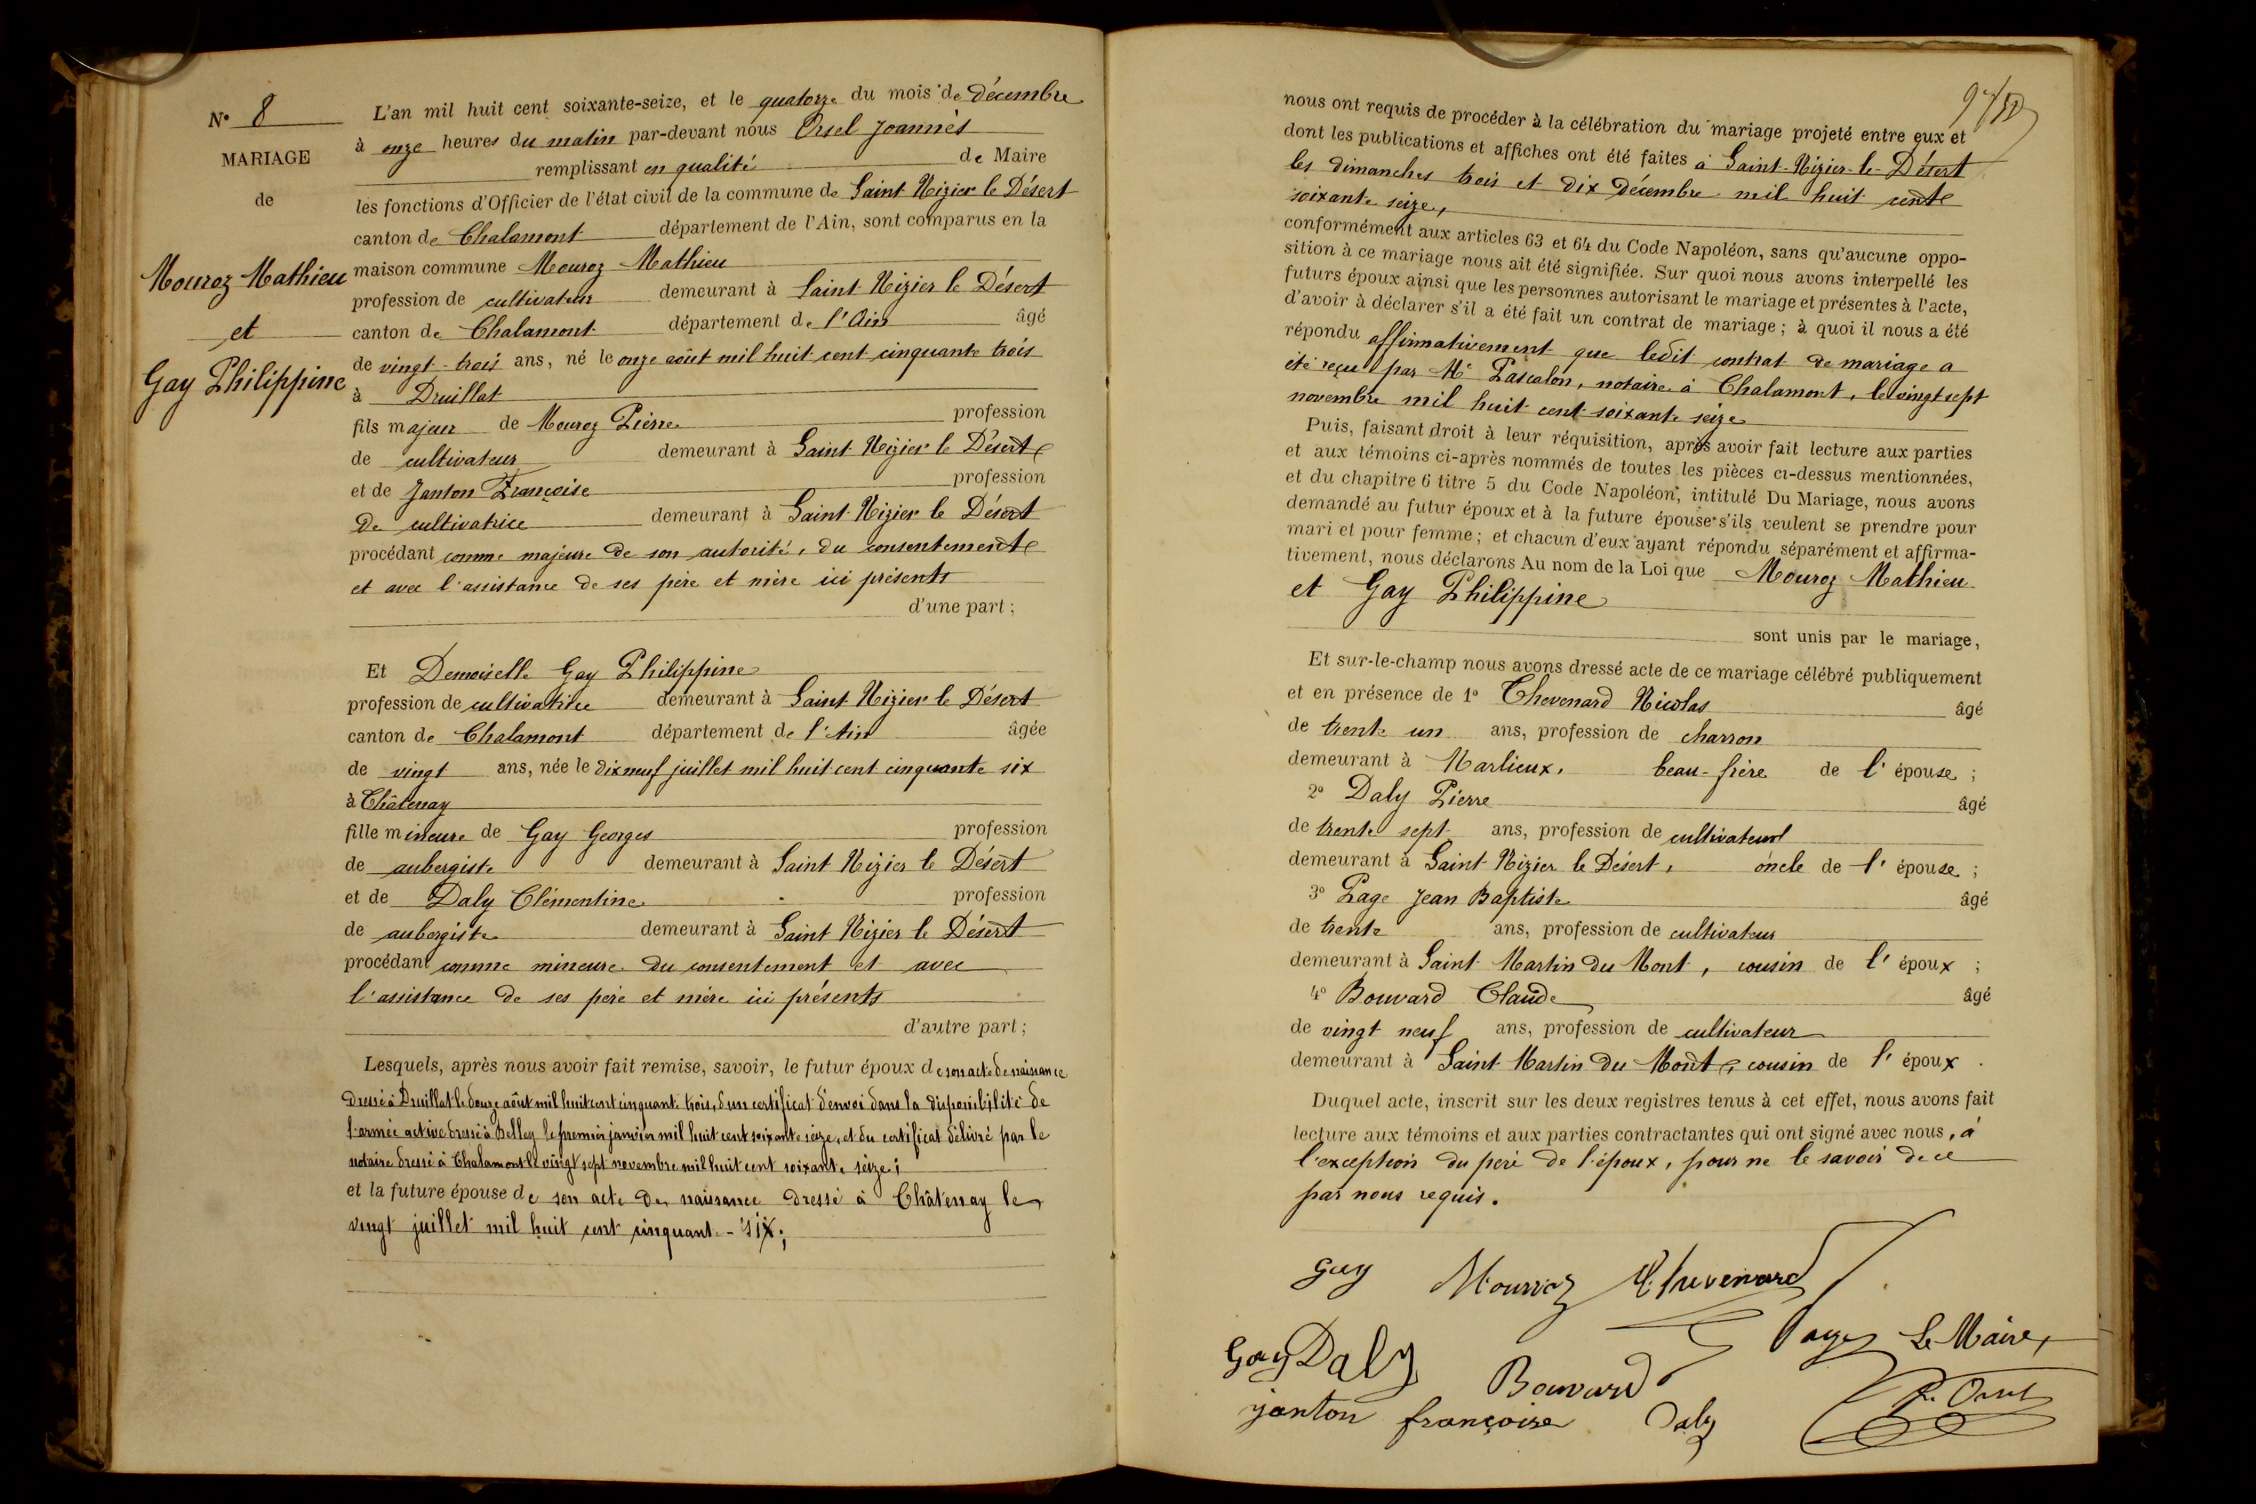 N° 8
MARIAGE
de
Mouroz Mathieu
et
Gay Philippine
L'an mil huit cent soixante-seize, et le quatorze du mois de décembre
à onze heures du matin par-devant nous Orsel Joannès
remplissant en qualité de Maire
les fonctions d'Officier de l'état civil de la commune de Saint Nizier le Désert
canton de Chalamont département de l'Ain, sont comparus en la
maison commune Mouroz Mathieu
profession de cultivateur demeurant à Saint Nizier le Désert
canton de Chalamont département de l'Ain âgé
de vingt-trois ans, né le onze août mil huit cent cinquante trois
à Druillat
fils majeur de Mouroz Pierre profession
de cultivateur demeurant à Saint Nizier le Désert
et de Janton Françoise profession
de cultivatrice demeurant à Saint Nizier le Désert
procédant comme majeure de son autorité, du consentement
et avec l'assistance de ses père et mère ici présents
d'une part ;
Et Demoiselle Gay Philippine
profession de cultivatrice demeurant à Saint Nizier le Désert
canton de Chalamont département de l'Ain âgée
de vingt ans, née le dix neuf juillet mil huit cent cinquante six
à Châtenay
fille mineure de Gay Georges profession
de aubergiste demeurant à Saint Nizier le Désert
et de Daly Clémentine profession
de aubergiste demeurant à Saint Nizier le Désert
procédant comme mineure du consentement et avec
l'assistance de ses père et mère ici présents
d'autre part ;
Lesquels, après nous avoir fait remise, savoir, le futur époux de son acte de naissance
dressé à Druillat le douze août mil huit cent cinquante trois, d'un certificat d'envoi dans la disponibilité de
l'armée active dressé à Belley le premier janvier mil huit cent soixante seize, et du certificat délivré par le
notaire dressé à Chalamont le vingt sept novembre mil huit cent soixante seize ;
et la future épouse de son acte de naissance dressé à Châtenay le
vingt juillet mil huit cent cinquante-six ;
nous ont requis de procéder à la célébration du mariage projeté entre eux et
dont les publications et affiches ont été faites à Saint-Nizier-le-Désert
les dimanches trois et dix décembre mil huit cent
soixante seize,
conformément aux articles 63 et 64 du Code Napoléon, sans qu'aucune oppo-
sition à ce mariage nous ait été signifiée. Sur quoi nous avons interpellé les
futurs époux ainsi que les personnes autorisant le mariage et présentes à l'acte,
d'avoir à déclarer s'il a été fait un contrat de mariage ; à quoi il nous a été
répondu affirmativement que ledit contrat de mariage a
été reçu par Me Pascalon, notaire à Chalamont, le vingt sept
novembre mil huit cent soixante seize
Puis, faisant droit à leur réquisition, après avoir fait lecture aux parties
et aux témoins ci-après nommés de toutes les pièces ci-dessus mentionnées,
et du chapitre 6 titre 5 du Code Napoléon, intitulé Du Mariage, nous avons
demandé au futur époux et à la future épouse s'ils veulent se prendre pour
mari et pour femme ; et chacun d'eux ayant répondu séparément et affirma-
tivement, nous déclarons Au nom de la Loi que Mouroz Mathieu
et Gay Philippine
sont unis par le mariage,
Et sur-le-champ nous avons dressé acte de ce mariage célébré publiquement
et en présence de 1° Thevenard Nicolas âgé
de trente un ans, profession de charron
demeurant à Marlieux, beau-frère de l'épouse ;
2° Daly Pierre âgé
de trente sept ans, profession de cultivateur
demeurant à Saint Nizier le Désert, oncle de l'épouse ;
3° Page Jean Baptiste âgé
de trente ans, profession de cultivateur
demeurant à Saint Martin du Mont, cousin de l'époux ;
4° Bouvard Claude âgé
de vingt neuf ans, profession de cultivateur
demeurant à Saint Martin du Mont, cousin de l'époux.
Duquel acte, inscrit sur les deux registres tenus à cet effet, nous avons fait
lecture aux témoins et aux parties contractantes qui ont signé avec nous, à
l'exception du père de l'époux, pour ne le savoir de ce
par nous requis.
Gay Mourroz Thevenard
Gay Daly Bouvard Page Le Maire,
janton françoise Daly J. Orsel